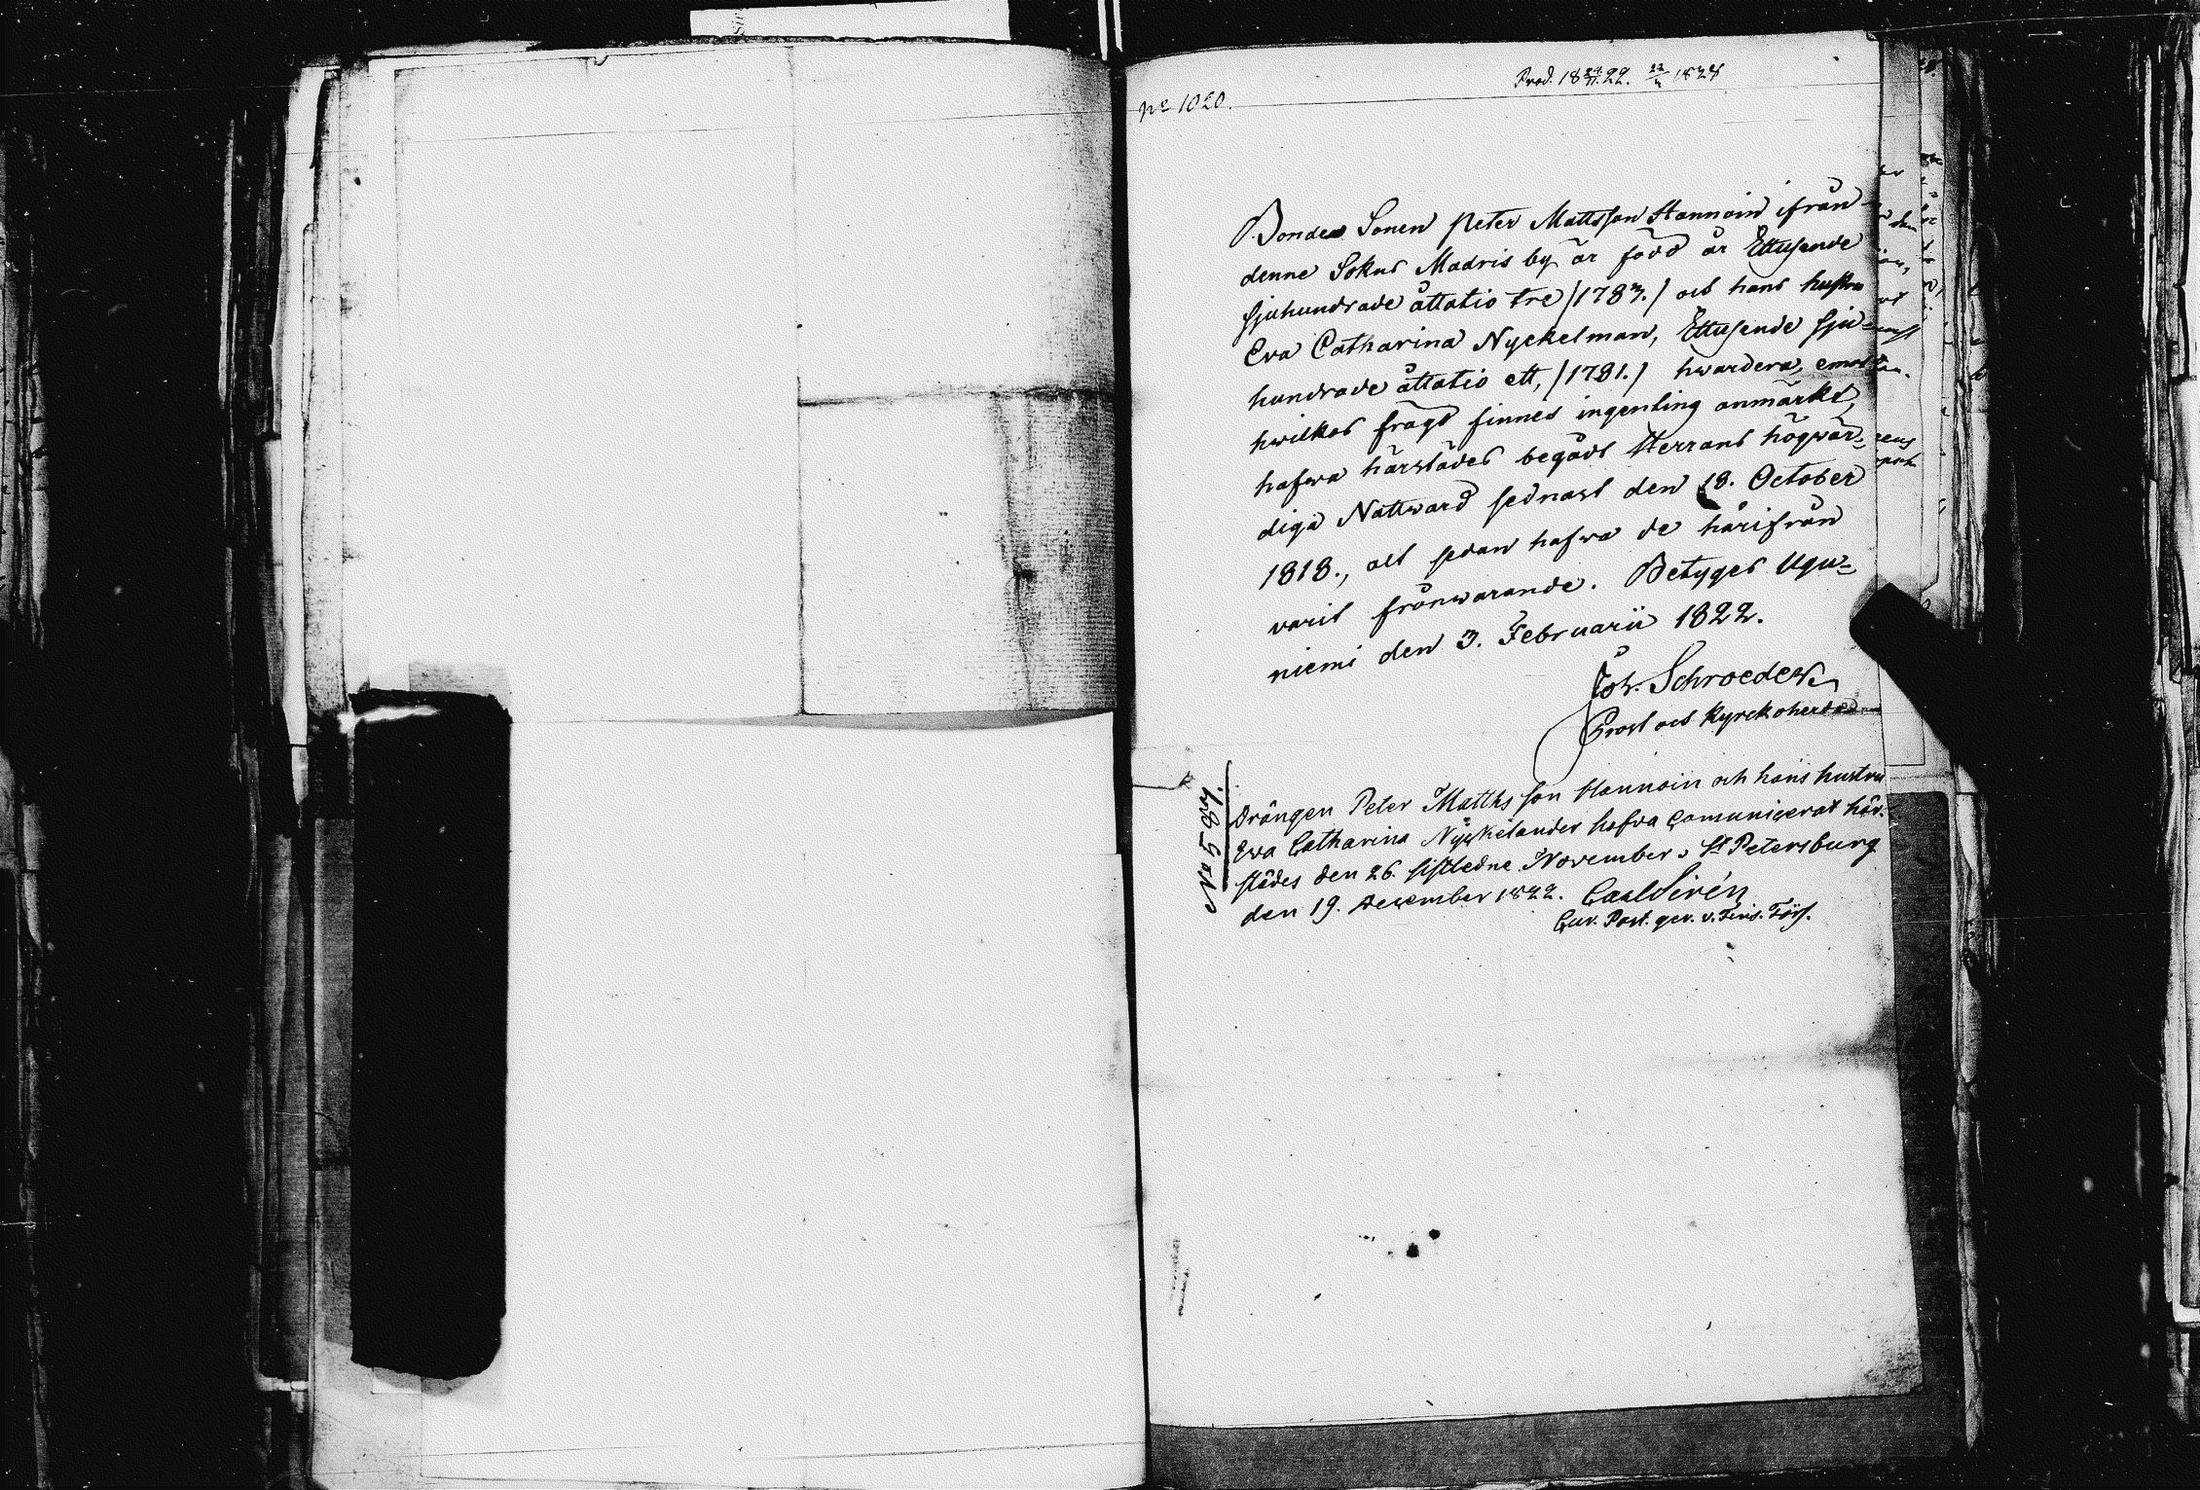 Prod. 18 24/11 22. 22/11 1824
No 1020.
Bonde Sonen Peter Mattsson Hannoin ifrån
denne Sokns Madris by är född år Ettusende
sjuhundrade åttatio tre /1783./ och hans hustru
Eva Catharina Nyckelman, Ettusende sju-
hundrade åttatio ett, /1781./ hwardera, emot
hwilkas frägd finnes ingenting anmärkt,
hafwa härstädes begådt Herrans högwär-
diga Nattward sednast den 18. October
1818., och sedan hafwa de härifrån
varit frånwarande. Betyges Ugu-
niemi den 3. Februarii 1822.
Joh. Schroeder
Prost och Kyrckoherde
No 5784.
Drängen Peter Matthsson Hannoin och hans hustru
Eva Catharina Nyckelander hafva comunicerat här-
städes den 26. sistledne November, St Petersburg
den 19. December 1822. Carl Sirén
Cur. Past. ger. v. Fins. Förs.